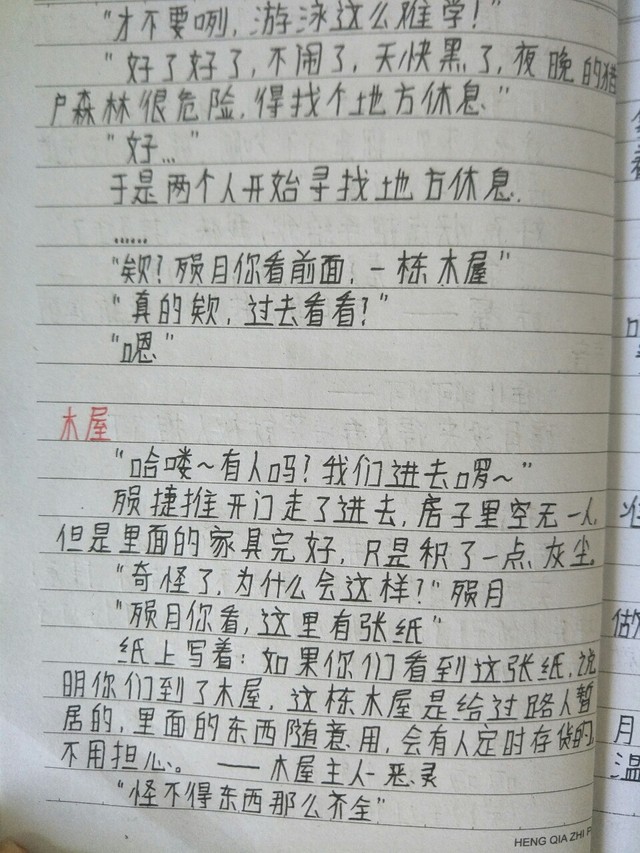 “才不要咧，游泳这么难学！”
“好了好了，不闹了，天快黑了，夜晚的猎
户森林很危险，得找个地方休息。”
“好…”
于是两个人开始寻找地方休息．
……
“欸？殒月你看前面，一栋木屋”
“真的欸，过去看看？”
“嗯”
木屋
“哈喽～有人吗？我们进去啰～”
殒捷推开门走了进去，房子里空无一人，
但是里面的家具完好，只是积了一点灰尘
“奇怪了，为什么会这样？”殒月
“殒月你看，这里有张纸”
纸上写着：如果你们看到这张纸，说
明你们到了木屋，这栋木屋是给过路人暂
居的，里面的东西随意用，会有人定时存货的，
不用担心。——木屋主人－恶灵
“怪不得东西那么齐全”
HENG QIA ZHI P
做
月
温